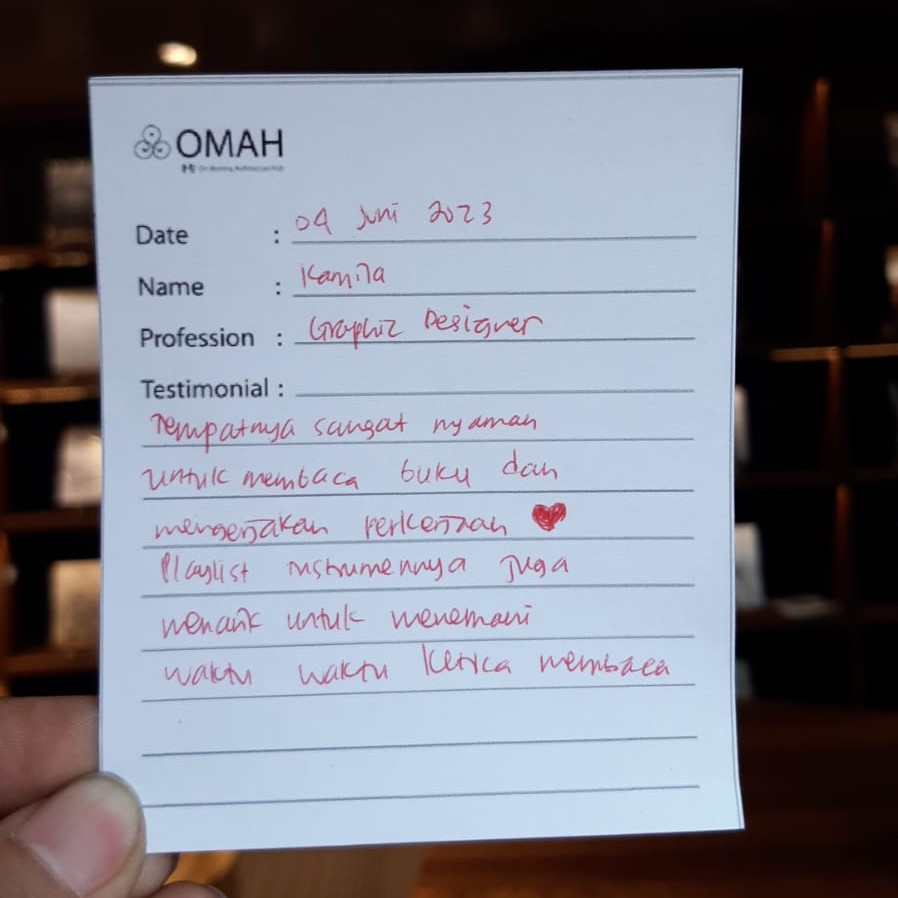 OMAH
Date : 04 Juni 2023
Name : Kamila
Profession : Graphic Designer
Testimonial :
Tempatnya sangat nyaman
untuk membaca buku dan
mengerjakan perkerjaan ❤
Playlist instrumennya juga
menarik untuk menemani
waktu waktu ketica membaca